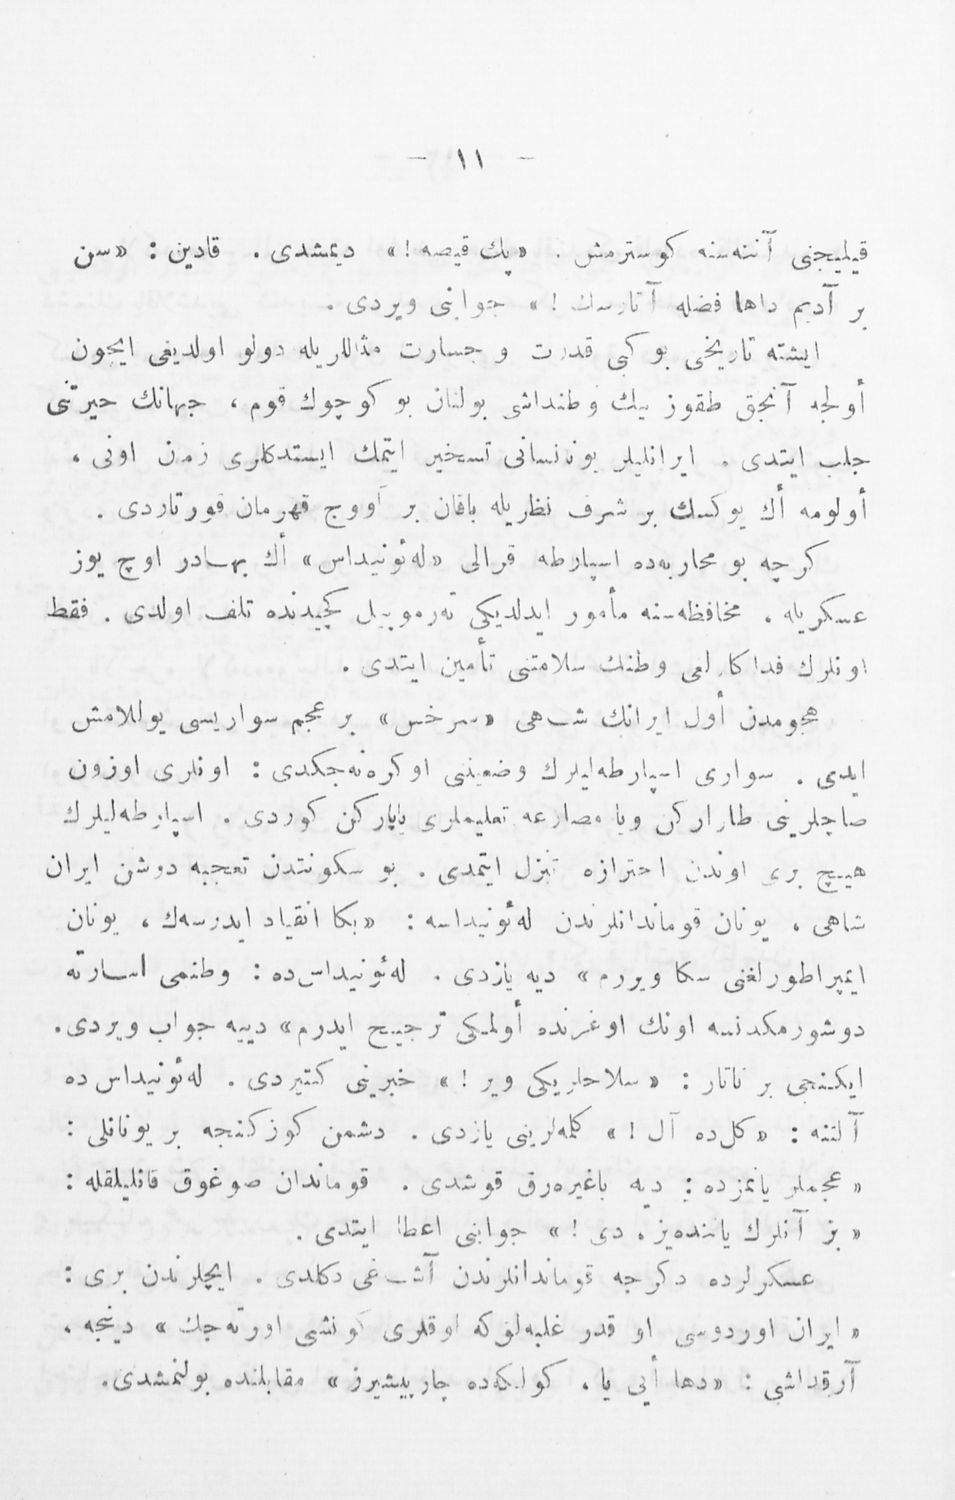 — ١١ —
قيليجنى آننه‌سنه كوسترمش . «پك قيصه !» ديمشدى . قادين : «سن
بر آديم داها فضله آتارسك ! » جوابنى ويردى .
ايشته تاريخى بو كبى قدرت و جسارت مثاللريله دولو اولديغى ايچون
أولجه آنجق طقوز بيك وطنداشى بولنان بو كوچوك قوم ، جهانك حيرتنى
جلب ايتدى . ايرانليلر يونانستانى تسخير ايتمك ايستدكلرى زمان اونى ،
أولومه أك يوكسك بر شرف نظريله باقان بر آووج قهرمان قورتاردى .
كرچه بو محاربه‌ده اسپارطه قرالى «له‌ئونيداس» أك بهادر اوچ يوز
عسكريله ، محافظه‌سنه مأمور ايدلديكى ته‌رموپيل كچيدنده تلف اولدى . فقط
اونلرك فداكارلغى وطنك سلامتنى تأمين ايتدى .
هجومدن أول ايرانك شاهى «سرخس» بر عجم سواريسى يوللامش
ايدى . سوارى اسپارطه‌ليلرك وضعيتنى اوكره‌نه‌جكدى : اونلرى اوزون
صاچلرينى طاراركن ويا مصارعه تعليملرى ياپاركن كوردى . اسپارطه‌ليلرك
هيچ برى اوندن احترازه تنزل ايتمدى . بو سكونتدن تعجبه دوشن ايران
شاهى ، يونان قوماندانلرندن له‌ئونيداسه : «بكا انقياد ايدرسه‌ك ، يونان
ايمپراطورلغنى سكا ويررم » ديه يازدى . له‌ئونيداس‌ده : وطنمى اسارته
دوشورمكدنسه اونك اوغرنده أولمكى ترجيح ايدرم» دييه جواب ويردى.
ايكنجى بر تاتار : «سلاحلريكى وير ! » خبرينى كتيردى . له‌ئونيداس ده
آلتنه : «كل‌ده آل ! » كلمه‌لرينى يازدى . دشمن كوزكنجه بر يونانلى :
« عجملر يانمزده : ديه باغيره‌رق قوشدى . قوماندان صوغوق قانليلقله :
« بز آنلرك ياننده‌يز ، دى ! » جوابنى اعطا ايتدى .
عسكرلرده دكرجه قوماندانلرندن آشاغى دكلدى . ايچلرندن برى :
« ايران اوردوسى او قدر غلبه‌لق‌كه اوقلرى كونشى اورته‌جك » دينجه ،
آرقداشى : «دها أيى يا ، كولكه‌ده چارپيشيرز» مقابلنده بولنمشدى.